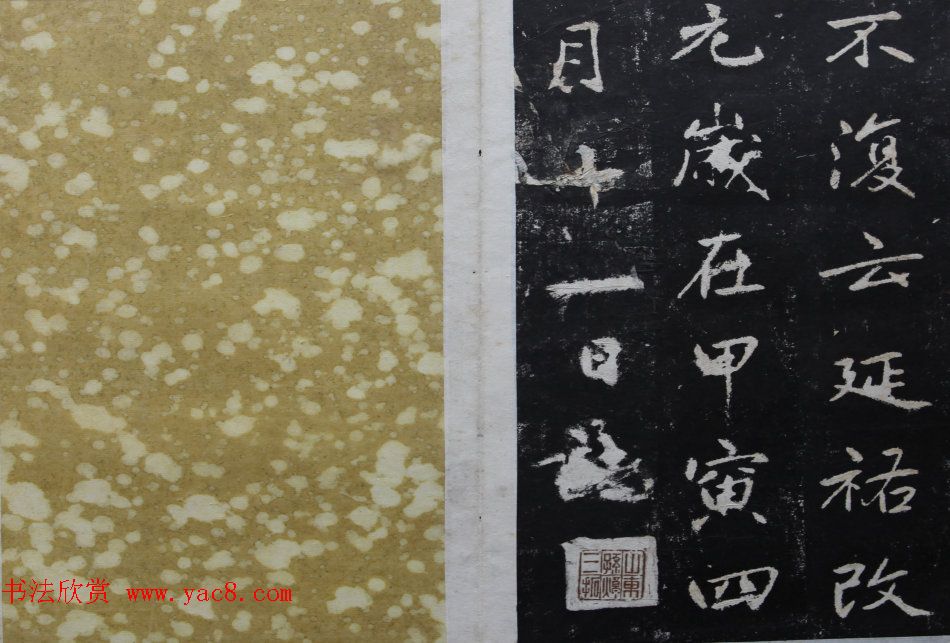 不復云延祐改
元歲在甲寅四
月十一日
山東
书法欣赏 www.yac8.com